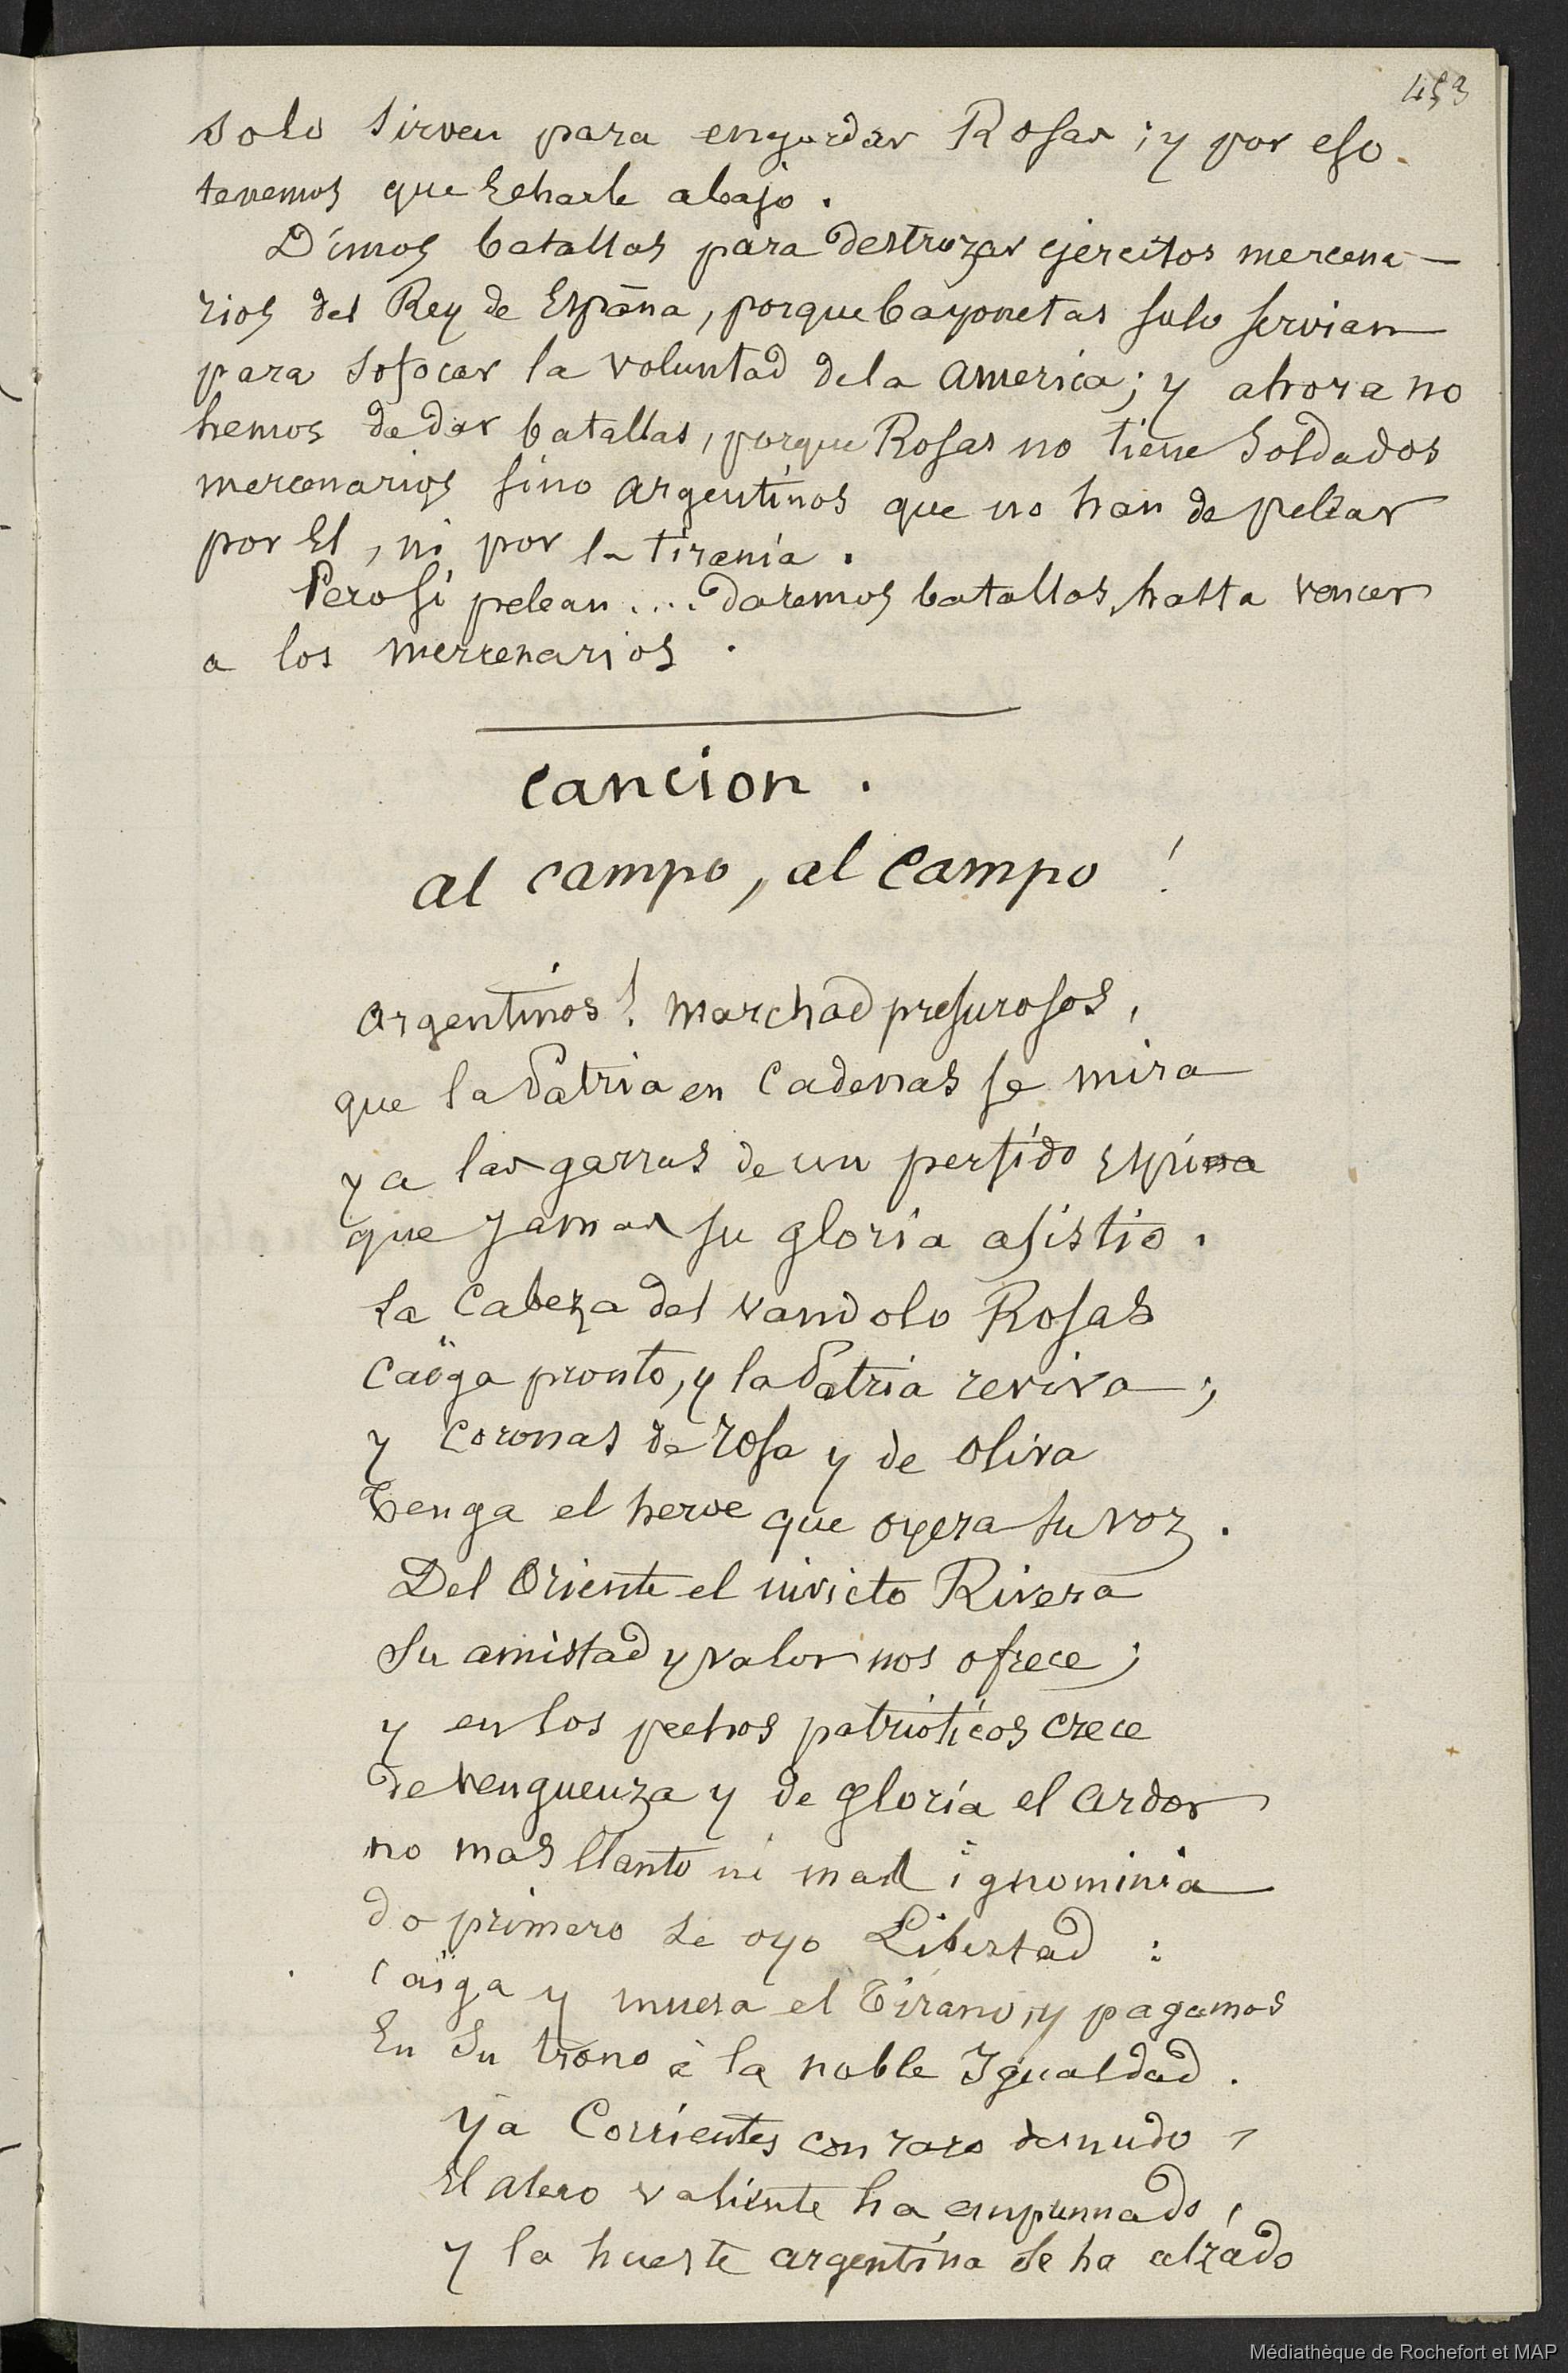 453
solo sirven para engordar Rosas ; y por eso
tenemos que Echarle abajo .
Dimos batallas para destruzar ejercitos mercena-
rios del Rey de España, porque bayonetas solo servian
para sofocar la voluntad de la America; y ahora no
hemos de dar batallas, porque Rosas no tiene Soldados
mercenarios sino argentinos que no han de pelear
por El, ni por la tirania .
Pero si pelean .... daremos batallas, hasta vencer
a los mercenarios .
Cancion .
al campo, al campo !
argentinos ! marchad presurosos,
que la Patria en Cadenas se mira
y a las garras de un perfido
que Jamas su gloria asistio .
La Cabeza del vandolo Rosas
Caïga pronto, y la Patria reviva ;
y Coronas de rosa y de oliva
Tenga el heroe que oyera su voz .
Del Oriente el invicto Rivera
Su amistad y valor nos ofrece ;
y en los pechos patrióticos crece
de venguenza y de gloria el ardor
no mas llanto ni mas ignominia
do primero se oyo Libertad :
Caïga y muera el Tirano, y pagamos
En Su trono à la noble Igualdad .
Ya Corrientes con raro desnudo,
El alero valiente ha empunnado,
y la hueste argentina se ha alzado
Médiathèque de Rochefort et MAP